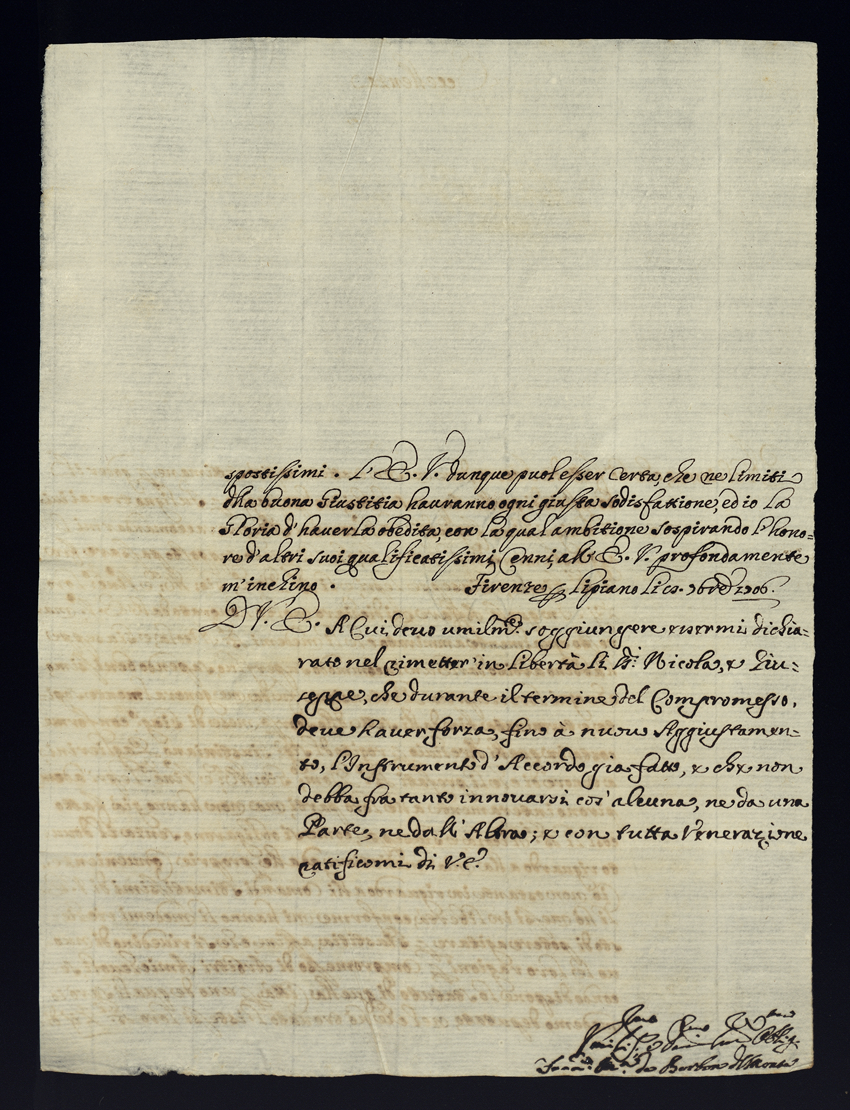 spostissimi. L'E. V. dunque puol esser Certa, che ne limiti
d͠lla buona Giustitia hauranno ogni giusta sodisfattione, ed io La
Gloria d'haverla obedita, con La qual ambitione sospirando L'hono=
re d'altri suoi qualificatissimi Cenni, all'E. V. profondamente
m'inchino. Firenze, Lipiano li 9bre 1706.
D. V. E. A Cui, devo umilm.te soggiungere essermi dichia=
rato nel rimetter' in Libertà li Nicola, e Giu=
seppe, che durante il termine del Compromesso,
deve haver forza, fino à nuovo Aggiustamen=
to, l'Instrumento d'Accordo gia fatto, e che non
debba fra tanto innovarsi cos' alcuna, ne da una
Parte, ne dall'Altra; e con tutta Venerazione
ratificomi di V. E.
Oblig.
da Borbon del Monte